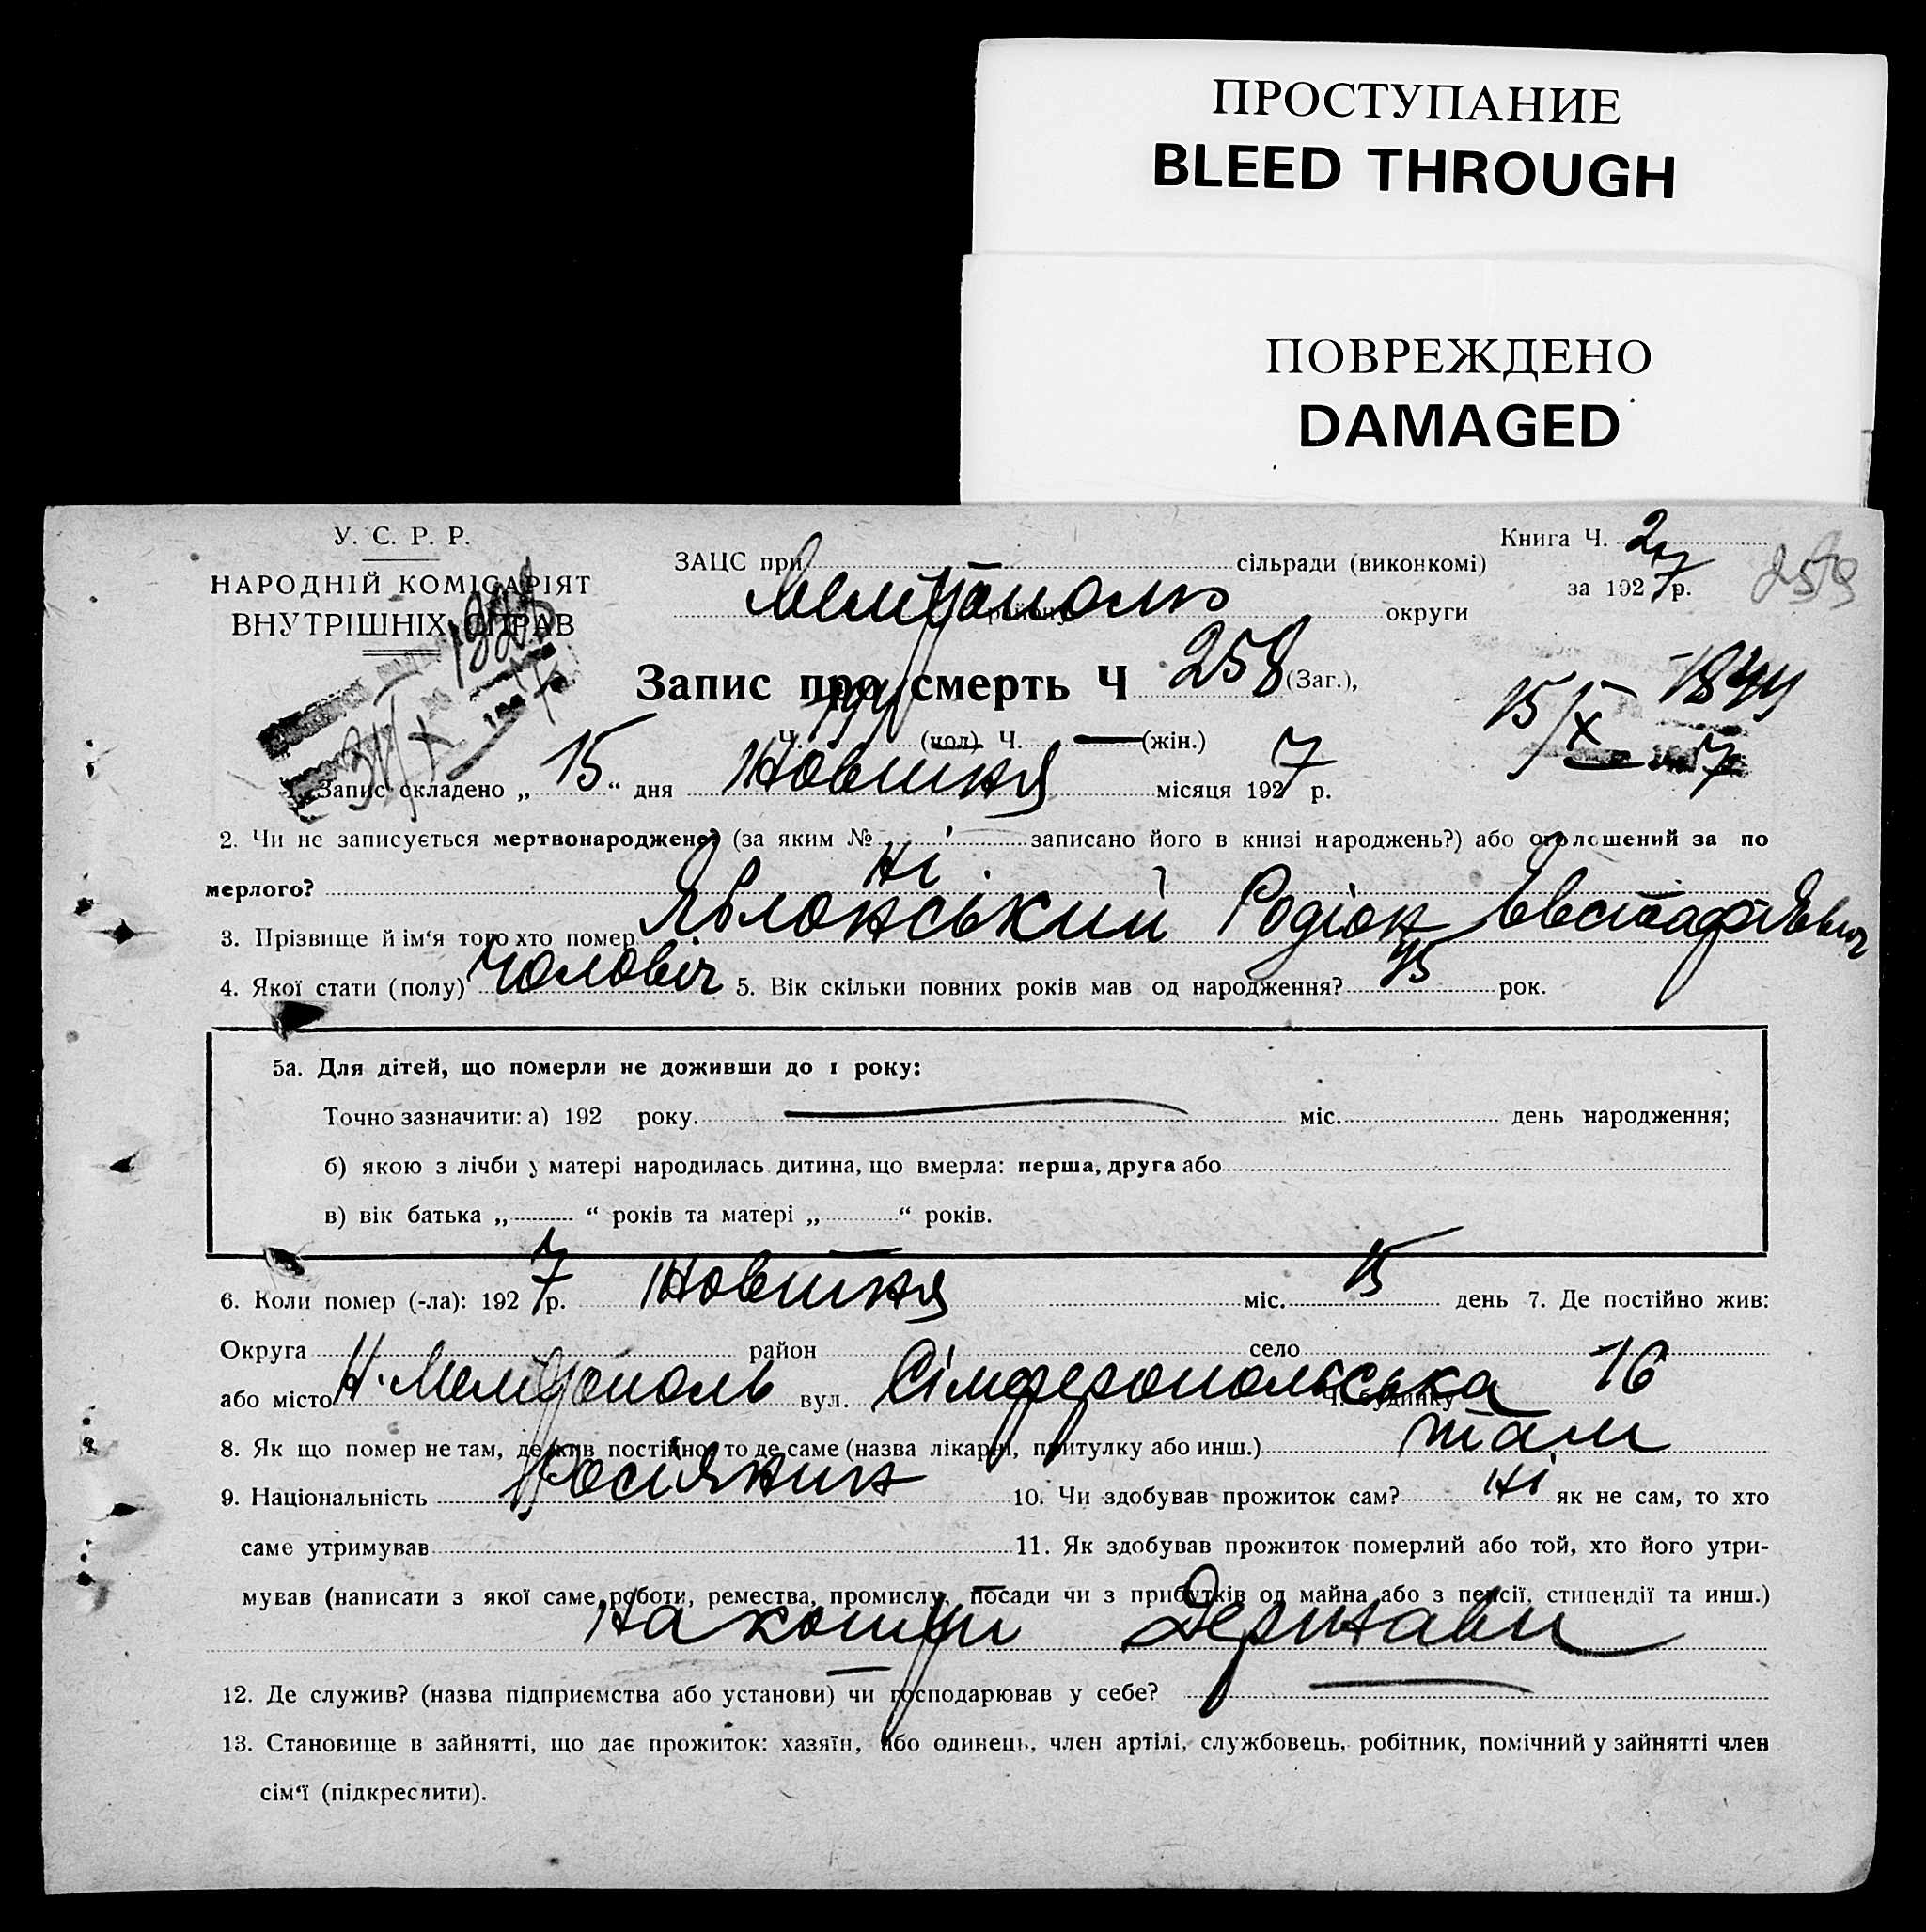 ПРОСТУПАНИЕ
BLEED THROUGH
ПОВРЕЖДЕНО
DAMAGED
У. С. Р. Р.
НАРОДНІЙ КОМІСАРІЯТ
ВНУТРІШНІХ СПРАВ
ЗАЦС при сільради (виконкомі)
Мелітополь району округи
Книга Ч. 2
за 1927 р.
259
Запис про смерть Ч 258 (Заг.),
Ч. (чол) Ч. — (жін.)
15/X 7
1. Запис складено „ 15 “ дня Жовтня місяця 1927 р.
2. Чи не записується мертвонароджене? (за яким № записано його в книзі народжень?) або оголошений за по
мерлого? Ні.
3. Прізвище й ім‘я того хто помер Яблонський Родіон Євстафієвич
4. Якої стати (полу) Чоловіч 5. Вік скільки повних років мав од народження? 75 рок.
5а. Для дітей, що померли не доживши до 1 року:
Точно зазначити: а) 192 року. міс. день народження;
б) якою з лічби у матері народилась дитина, що вмерла: перша, друга або
в) вік батька „ “ років та матері „ “ років.
6. Коли помер (-ла): 1927 р. Жовтня міс. 15 день 7. Де постійно жив:
Округа район село
або місто Н. Мелітополь вул. Сімферопольська Ч. будинку 16
8. Як що помер не там, де жив постійно, то де саме (назва лікарні, притулку або инш.) там
9. Національність Росіянин 10. Чи здобував прожиток сам? Ні як не сам, то хто
саме утримував 11. Як здобував прожиток померлий або той, хто його утри-
мував (написати з якої саме роботи, ремества, промислу, посади чи з прибутків од майна або з пенсії, стипендії та инш.)
на кошти Держави
12. Де служив? (назва підприємства або установи) чи господарював у себе? —
13. Становище в зайнятті, що дає прожиток: хазяїн, або одинець, член артілі, службовець, робітник, помічний у зайнятті член
сім‘ї (підкреслити).